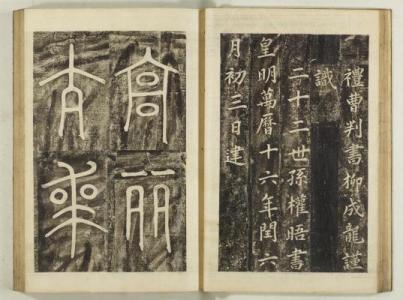 禮曹判書柳成龍謹
識
二十二世孫權晤書
皇明萬曆十六年閏六
月初三日建
高麗
太師